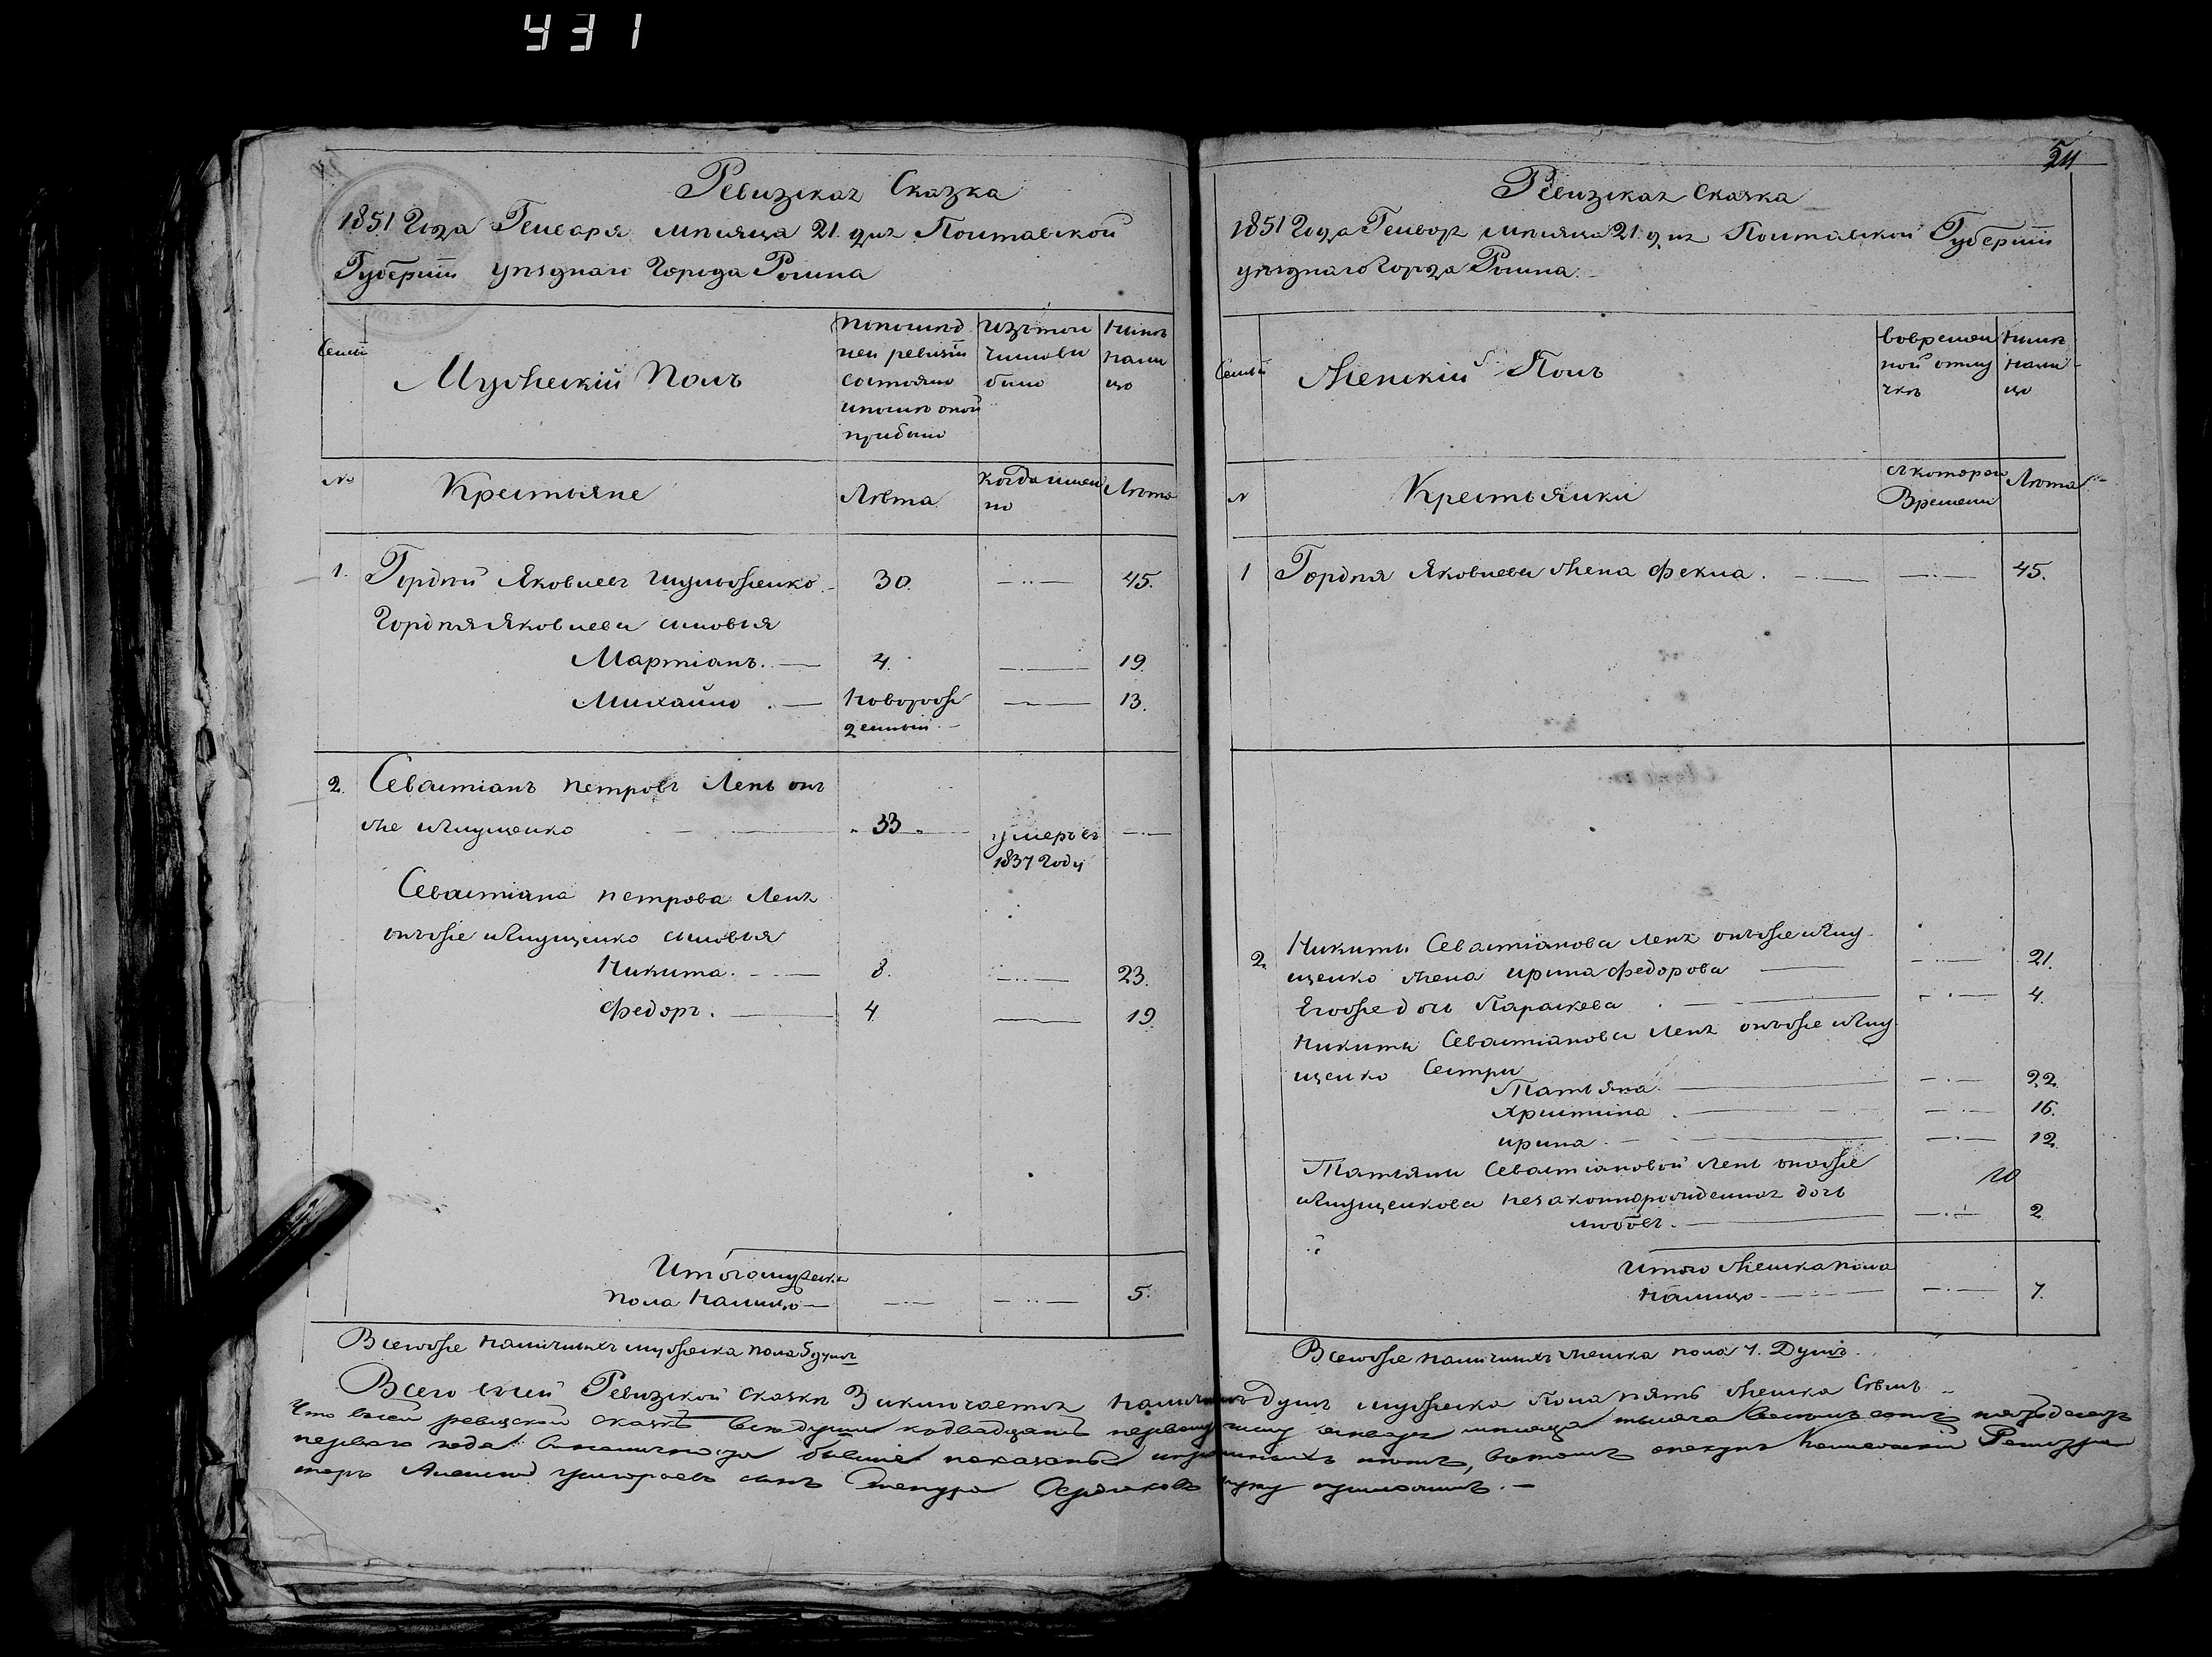 431
Ревизская Сказка
1851 Года Генваря мѣсяца 21 дня Полтавской
Губерніи уѣзднаго Города Ромна
Семьи
Мужескій Полъ
По послѣд
ней ревизіи
состояло
и послѣ оной
прибыло
Изъ того
числа вы
было
Нынѣ
нали
цо
№
Крестьяне
Лѣта
Когда имен
но
Лѣта
1. Гордѣй Яковлевъ Шульженко 30. 45.
Гордѣя Яковлева сыновья
Мартіанъ. 4. 19.
Михайло 13.
Новорож
денный
2. Севастіанъ Петровъ Лепъ онъ
же Ялущенко 33
умеръ въ
1837 Году
Севастіана Петрова Лепа
онъ же Ялущенко сыновья
Никита. 8. 23.
Федоръ. 4 19
Итого мужеска
пола налицо 5.
Всего же наличныхъ мужеска пола 5 душъ
54
Ревизская Сказка
1851 Года Генвар мѣсяца 21 дня Полтавской Губерніи
уѣзднаго Города Ромна
Семьи
Женскій Полъ
Во времен
ной отлу
чкѣ
Нынѣ
нали
цо
№
Крестьянки
съ котораго
Времени
Лѣта
1 Гордѣя Яковлева жена Фекла. 45.
2. Никиты Севастіанова Лепа онъ же Ялу
щенко жена Ирина Федорова 21.
Его же дочь Параскева 4.
Никиты Севастіанова Лепа онъ же Ялу
щенко Сестры
Татьяна 22
Христина 16.
Ирина 12
Татьяны Севастіановой Лепъ она же
Ялущенкова незаконнорожденная дочь
Любовъ. 2
Итого женска пола
налицо 7.
Всего же наличныхъ женска пола 7. Душъ.
Всего въ сей Ревизской Сказкѣ Заключается Наличныхъ Душъ мужеска Пола пять женска Семь
Что въ сей ревизской сказкѣ всѣ души къ двадцать первому числу Января мѣсяца тысяча восемь сотъ пятьдесятъ
перваго года въ наличности бывшіе показаны и прописныхъ нѣтъ, въ томъ опекунъ
Алексей Григорьевъ сынъ руку приложилъ.